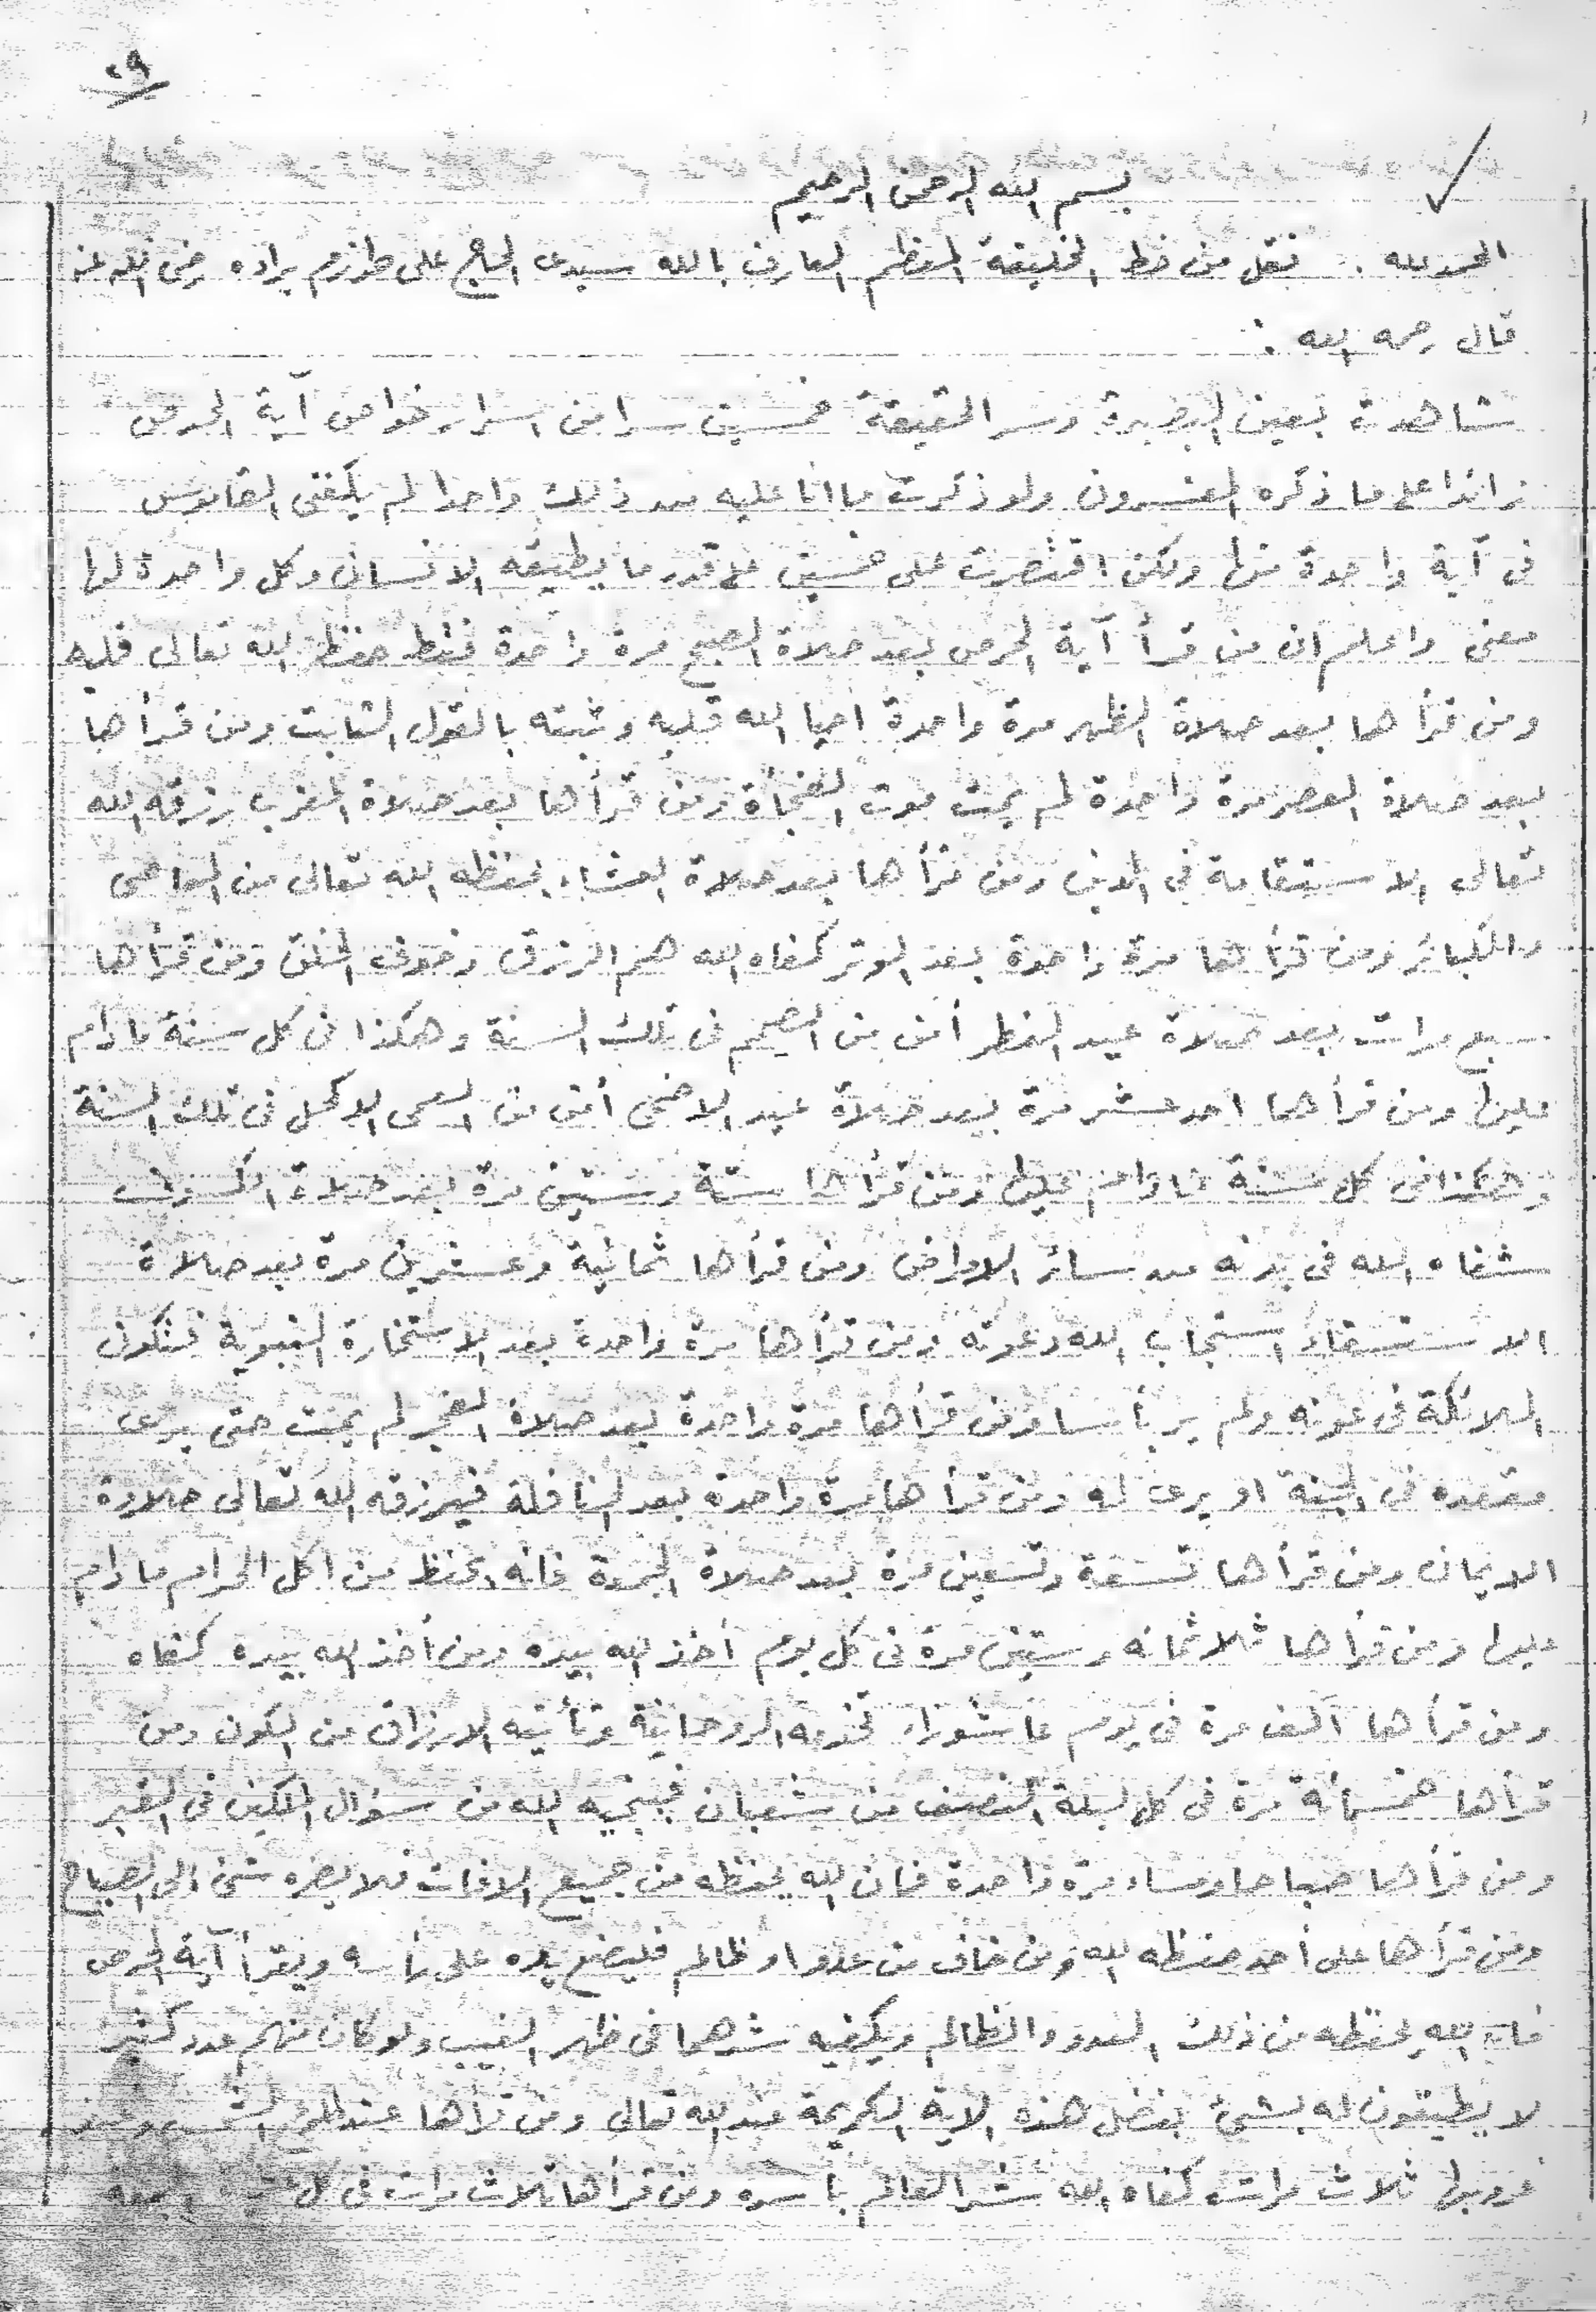 ٢٩
بسم الله الرحمن الرحيم
الحمد لله . نقل من خط الخليفة المعظم العارف بالله سيدى الحاج على حرازم براده رضى الله عنه
قال رحمه الله :
شاهدت بعين البصيرة وسر الحقيقة خمسين سرا من اسرار خواص آية الحرص
زائدا على ما ذكره المفسرون ولو ذكرت ما انا عليه من ذلك واحدا لم يكفنى القاموس
فى آية واحدة منها ولكن اقتصرت على خمسين على قدر ما يطيقه الانسان وكل واحدة لها
معنى واعلم ان من قرأ آية الحرص بعد صلاة الصبح مرة واحدة فقط حفظ الله تعالى قلبه
ومن قرأها بعد صلاة الظهر مرة واحدة احيا الله قلبه وثبته بالقول الثابت ومن قرأها
بعد صلاة العصر مرة واحدة لم يمت موت الفجأة ومن قرأها بعد صلاة المغرب رزقه الله
تعالى الاستقامة فى الدين ومن قرأها بعد صلاة العشاء يحفظه الله تعالى من المعاصى
والكبائر ومن قرأها مرة واحدة بعد الوتر كفاه الله هم الرزق وخوف الخلق ومن قرأها
سبع مرات بعد صلاة عيد الفطر أمن من الصمم فى تلك السنة وهكذا فى كل سنة ما دام
عليها ومن قرأها احد عشر مرة بعد صلاة عيد الاضحى أمن من السعى للاكل فى تلك السنة
وهكذا فى كل سنة ما دام عليها ومن قرأها ستة وستين مرة بعد صلاة الكسوف
شفاه الله فى بدنه من سائر الامراض ومن قرأها ثمانية وعشرين مرة بعد صلاة
الاستسقاء استجاب الله دعوته ومن قرأها مرة واحدة بعد الاستخارة النبوية فتكون
الملائكة فى عونه ولم ير بأسا ومن قرأها مرة واحدة بعد صلاة الفجر لم يمت حتى يرى
مقعده فى الجنة او يرى له ومن قرأها مرة واحدة بعد النافلة فيرزقه الله تعالى حلاوة
الايمان ومن قرأها تسعة وتسعين مرة بعد صلاة الجمعة فانه يحفظ من اكل الحرام ما دام
عليها ومن قرأها ثلاثمائه وستين مرة فى كل يوم أخذ الله بيده ومن أخذ الله بيده كفاه
ومن قرأها الف مرة فى يوم عاشوراء تخدمه الروحانية وتأتيه الارزاق من الكون ومن
قرأها خمسمائة مرة فى كل ليلة النصف من شعبان فينجيه الله من سؤال الملكين فى القبر
ومن قرأها صباحا ومساء مرة واحدة فان الله يحفظه من جميع الافات فلا يضره شئ الى الصباح
ومن قرأها على أحد حفظه الله ومن خاف من عدو او ظالم فليضع يده على رأسه ويقرأ آية الحرص
فان الله يحفظه من ذلك العدو والظالم ويكفيه شرهما فى ظهر الغيب ولو كان منهم عدد كثير
لا يطيقون له بشئ بفضل هذه الاية الكريمة عند الله تعالى ومن قرأها عند طلوع الشمس وعند
غروبها ثلاث مرات كفاه الله شر العالم بأسره ومن قرأها ثلاث مرات فى كل